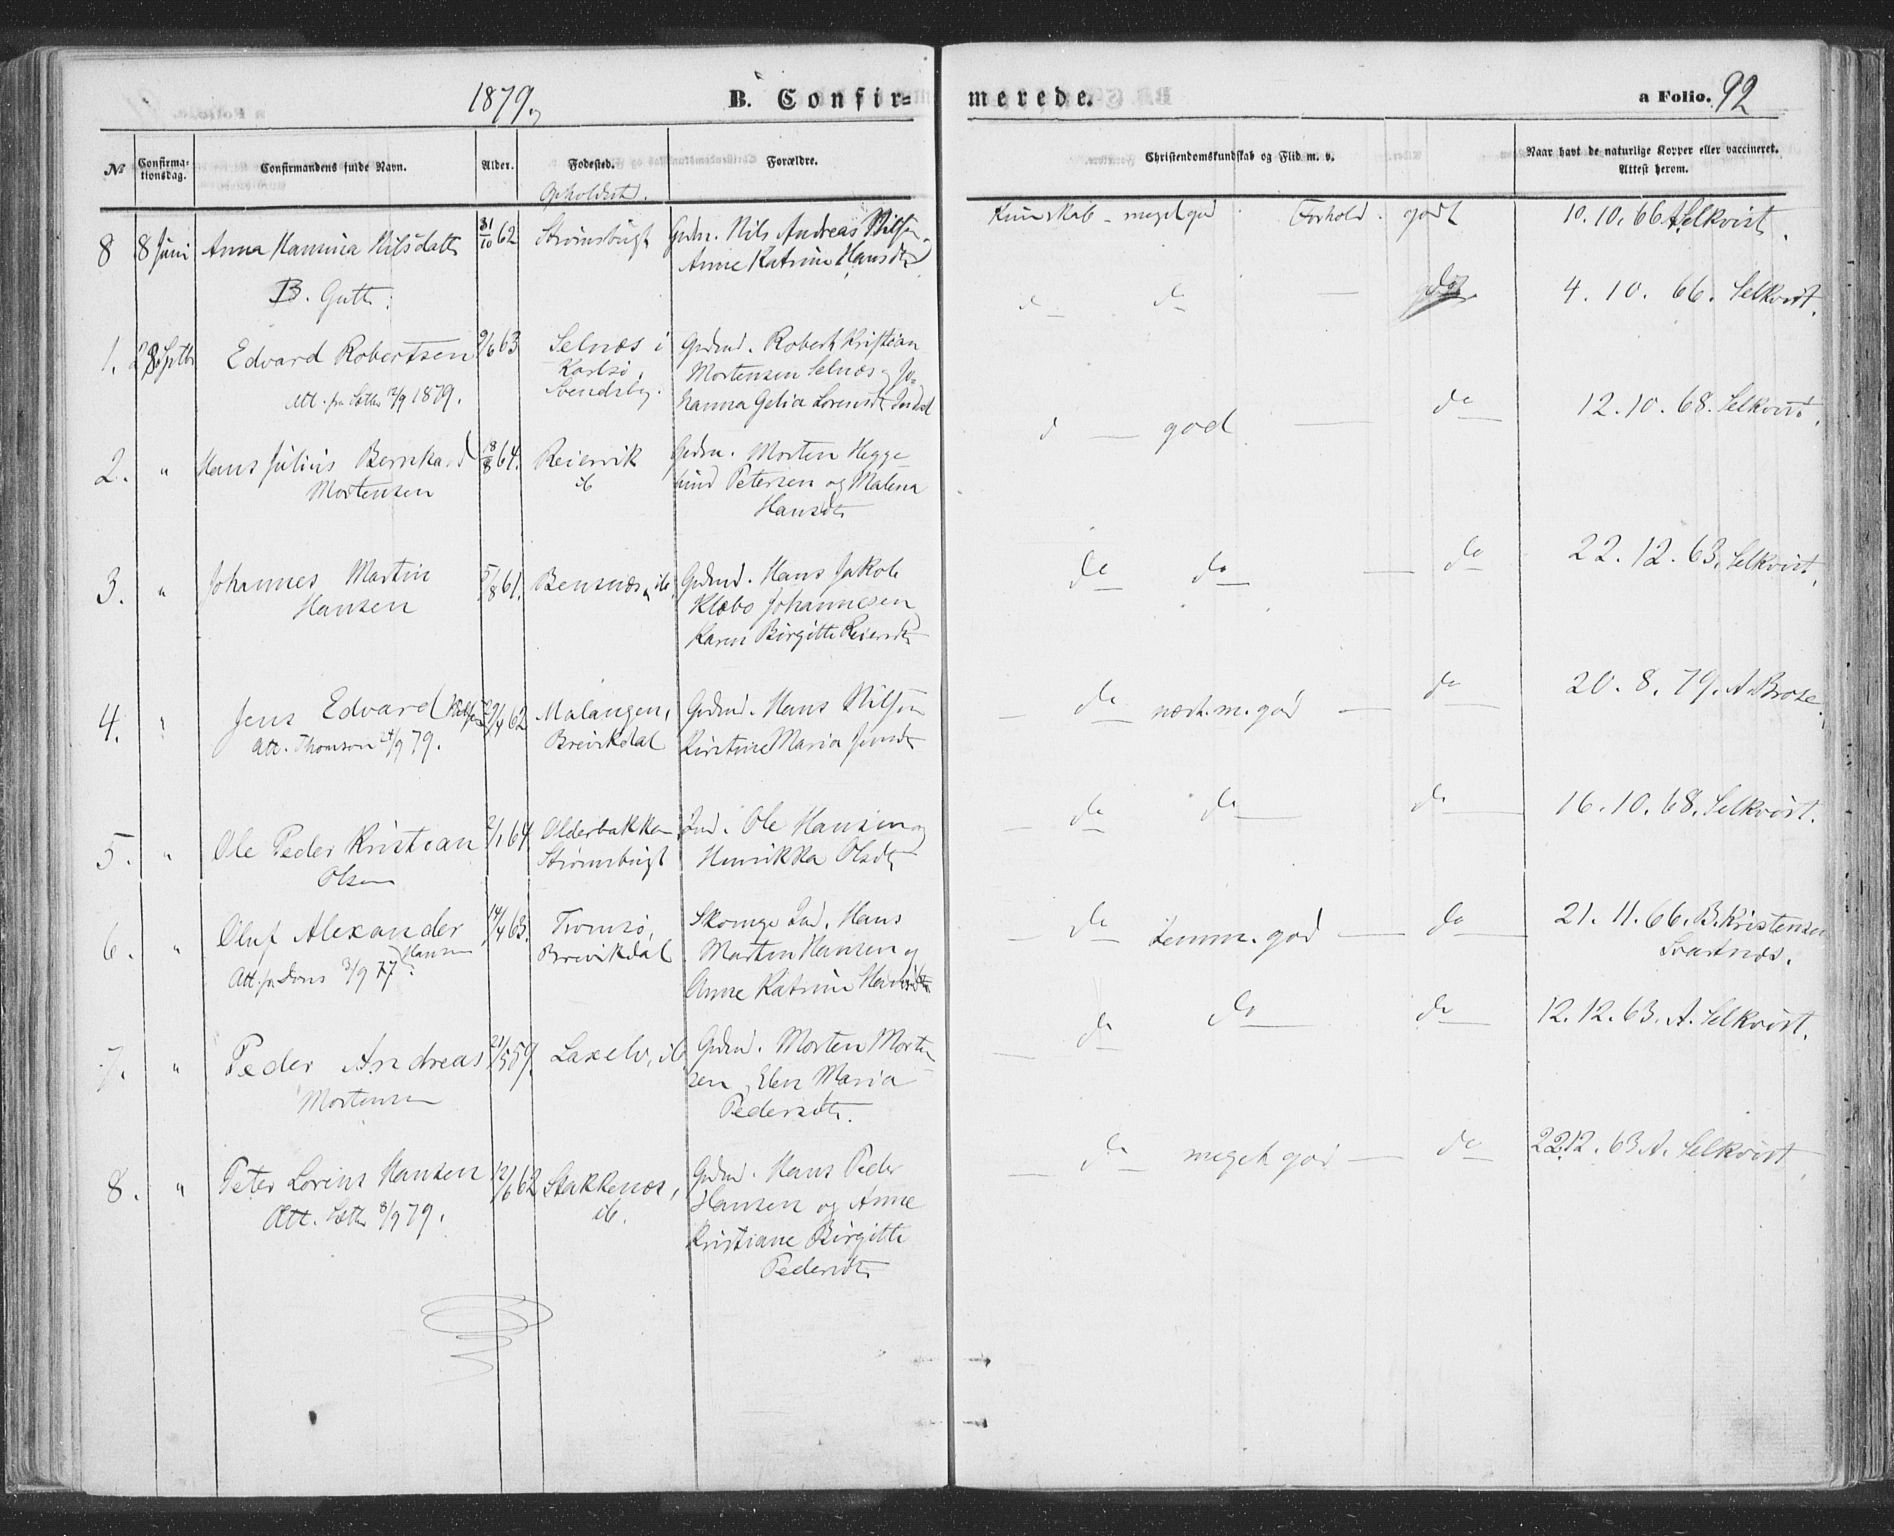 1879.
B. Confir=
merede.
a Folio. 92
No
Confirma-
tionsdag.
Confirmandens fulde Navn.
Alder.
Fodested.
Opholdsst.
Forældre.
Christendomskundskab og Flid m. v.
Naar havt de naturlige Kopper eller vaccineret.
Attest herom.
8 8 Juni Anna Hansina Nilsdatt 31/10 62 Strømsbugt Grdm. Nils Andreas Nilsen
Anne Katrine Hansdt
Kunskab - meget god Forhold. godt 10.10.66. A. Selkvist.
B. Gutt:
1. 28 Septbr Edvard Robertsen 9/6 63 Selnæs i
Karlsø,
Svendsby.
Att. fra Sæther 12/9 1879.
Grdmd. Robert Kristian
Mortensen Selnæs og Jo-
hanna Gelia Lorensdt
d do do 4. 10. 66. Selkvist.
2. " Hans Julius Bernhard
Mortensen
18/8 64. Reiervik
ib
Grdm. Morten Hegge-
lund Petersen og Malena
Hansdt
d god do 12.10.68. Selkvist.
3. " Johannes Martin
Hansen
5/8 61. Bensnæs, ib.
Grdmd. Hans Jakob
Klæbo Johannesen
Karen Birgitte Reiersdt
do do do 22.12.63. Selkvist.
4. " Jens Edvard
Att. Thomson 24/9 79.
62 Malangen,
Breivikdal
Grdmd. Hans Nilsen
Kirstine Maria Jensdt
do næst. m. god do 20.8.79. A. Brose.
5. " Ole Peder Kristian
Olsen
2/1 64. Olderbakken
Strømsbugt
Ind. Ole Hansen og
Henrikka Olsdt
do do do 16.10.68. Selkvist.
6. " Oluf Alexander
Hansen
Att. fr Dons 3/9 77.
14/4 63. Tromsø,
Breivikdal
Skomge Ind. Hans
Martin Hansen og
Anne Katrine
do temm. god do 21.11.66. B. Kristensen
Svartnæs.
7. " Peder Andreas
Mortensen
21/5 59. Laxelv, ib.
Grdmd. Morten Morten
sen, Elen Maria
Pedersdt.
do do do 12.12.63. A. Selkvist.
8. " Peter Lorens Hansen
Att. Sæth 8/9 79.
12/6 62 Stakkenæs,
ib.
Grdmd. Hans Peder
Hansen og Anne
Kristiane Birgitte
Pedersdt
do meget god do 22.12.63 A. Selkvist.